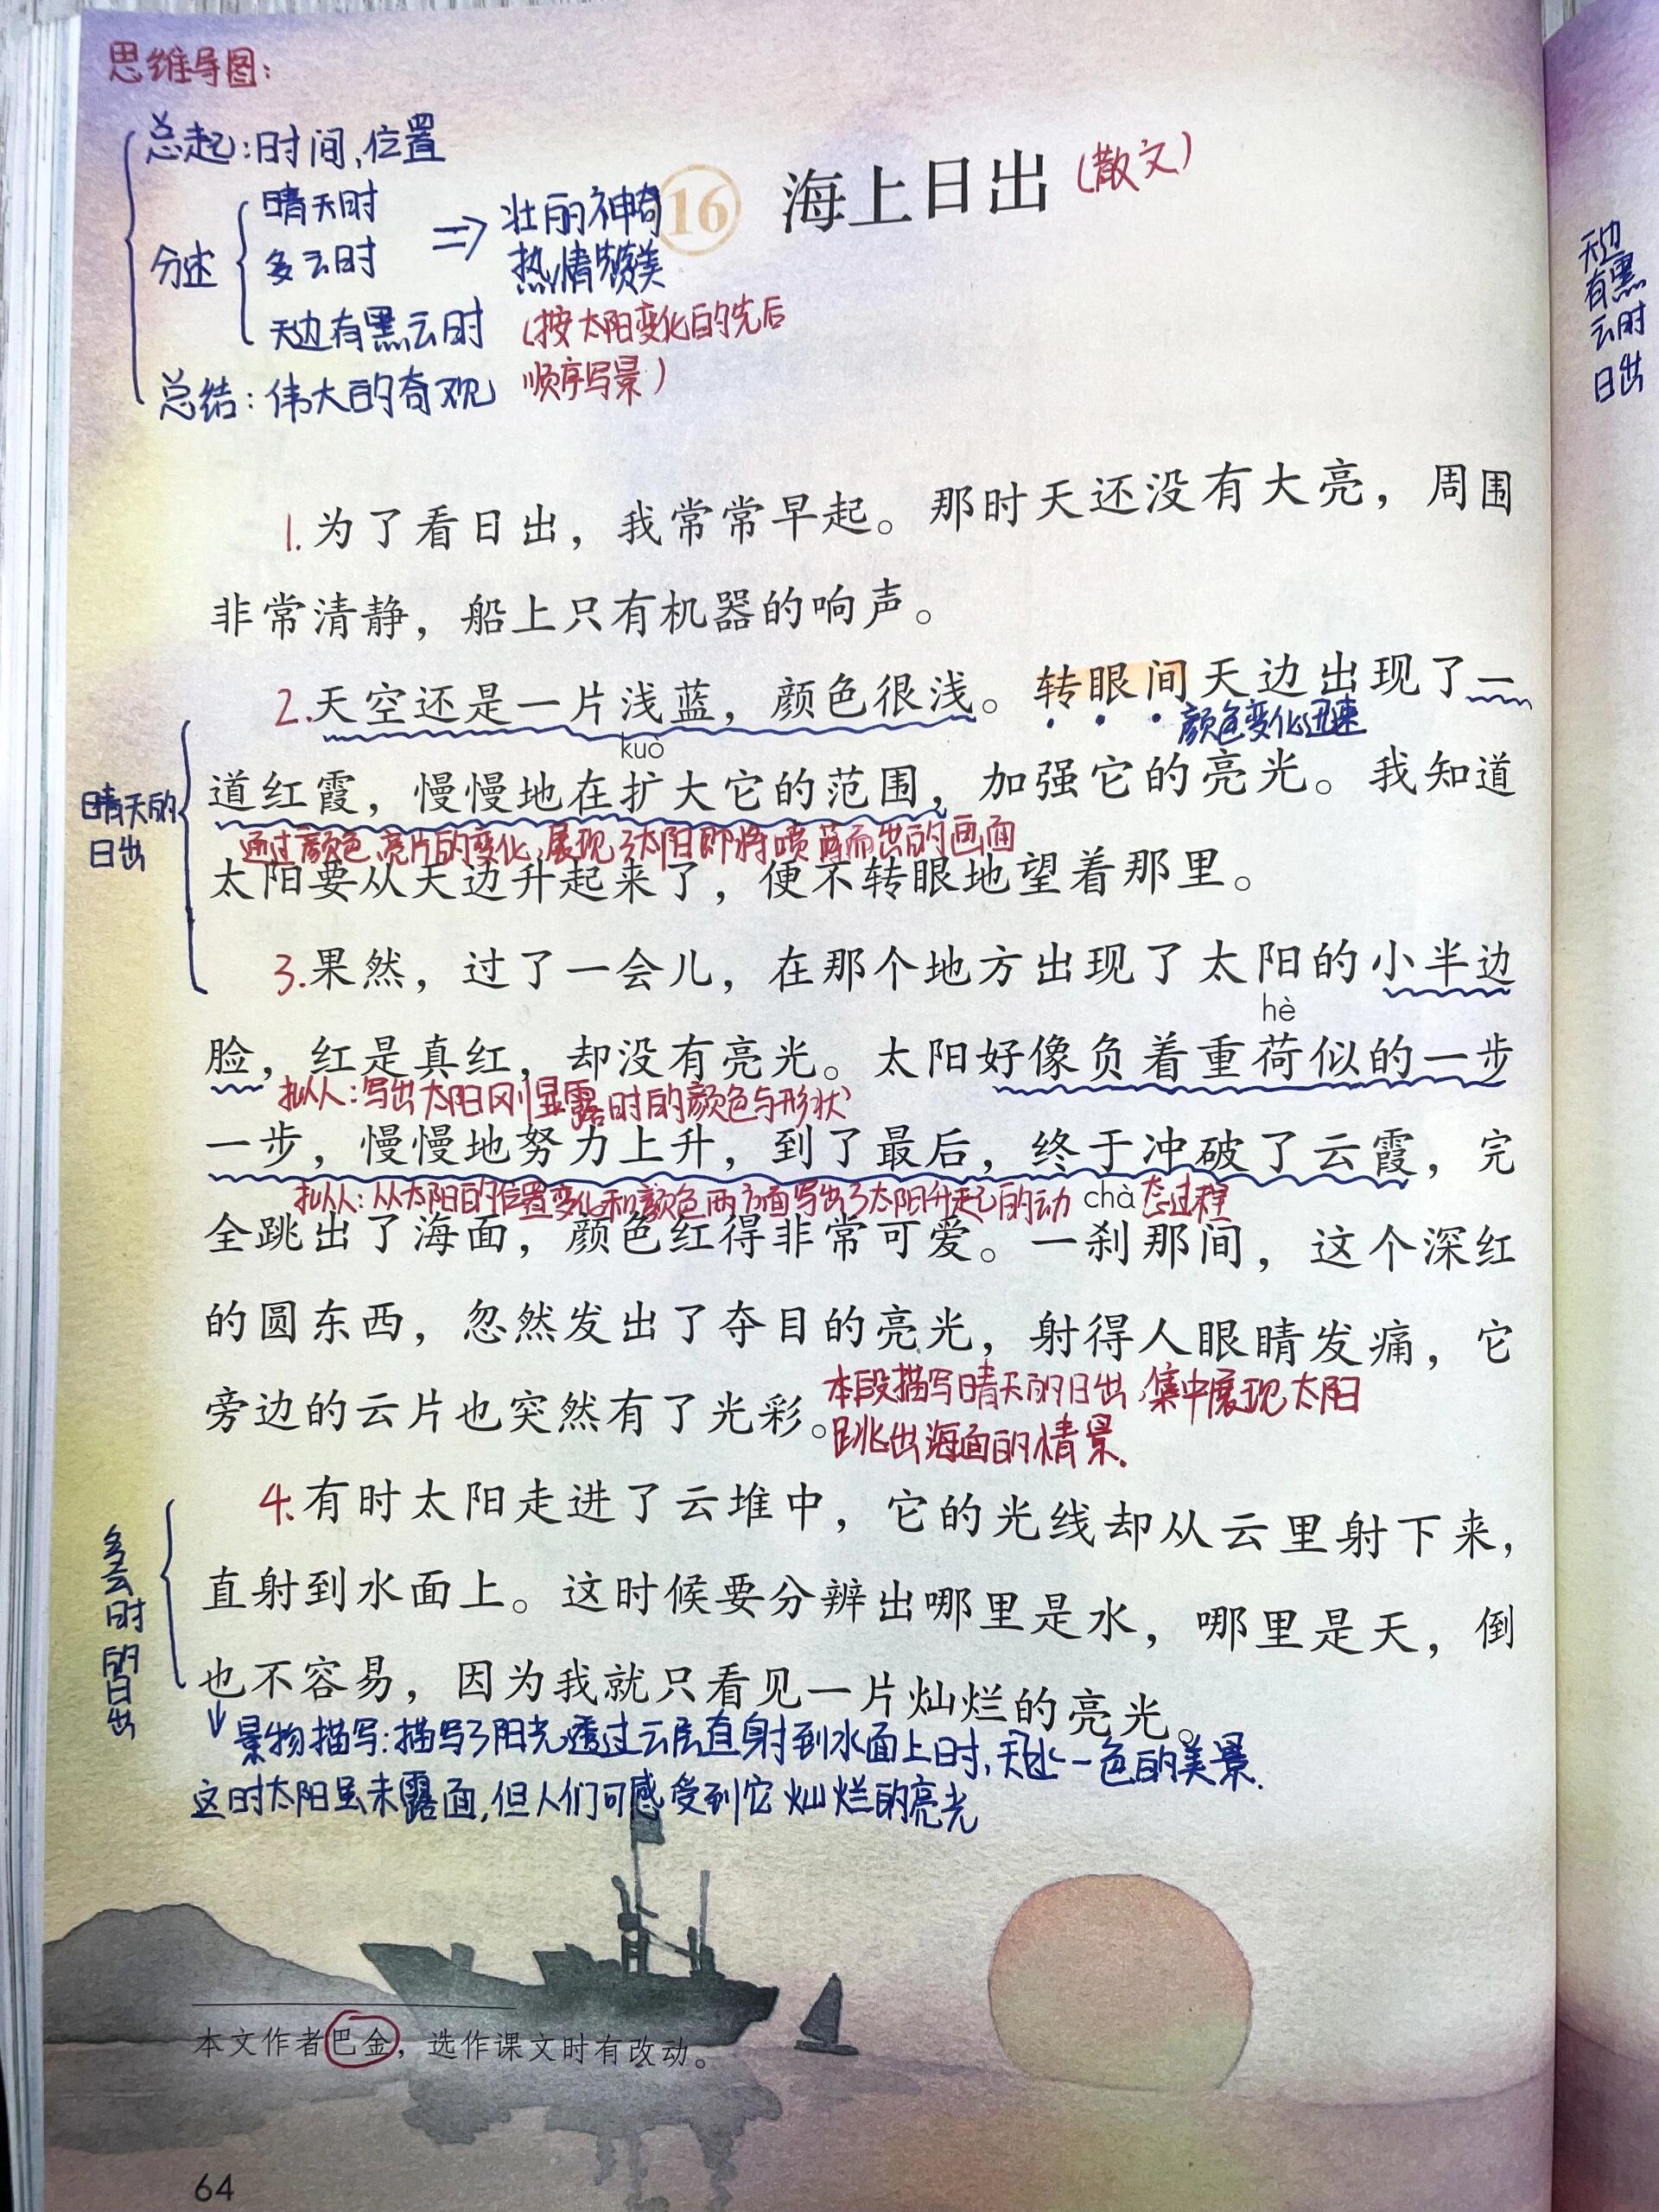 思维导图：
总起：时间、位置
16 海上日出（散文）
分述
晴天时
多云时
天边有黑云时
⇒ 壮丽神奇
热情赞美
（按太阳变化的先后
顺序写景）
总结：伟大的奇观
1.为了看日出，我常常早起。那时天还没有大亮，周围
非常清静，船上只有机器的响声。
2.天空还是一片浅蓝，颜色很浅。转眼间天边出现了一
颜色变化迅速
kuò
晴天的
日出
道红霞，慢慢地在扩大它的范围，加强它的亮光。我知道
通过颜色、亮片的变化，展现了太阳即将喷薄而出的画面
太阳要从天边升起来了，便不转眼地望着那里。
3.果然，过了一会儿，在那个地方出现了太阳的小半边
hè
脸，红是真红，却没有亮光。太阳好像负着重荷似的一步
拟人：写出太阳刚显露时的颜色与形状
一步，慢慢地努力上升，到了最后，终于冲破了云霞，完
拟人：从太阳的位置变化和颜色两方面写出了太阳升起的动态过程
chà
全跳出了海面，颜色红得非常可爱。一刹那间，这个深红
的圆东西，忽然发出了夺目的亮光，射得人眼睛发痛，它
旁边的云片也突然有了光彩。
本段描写晴天的日出，集中展现太阳
跳出海面的情景.
4.有时太阳走进了云堆中，它的光线却从云里射下来，
多云时的日出
直射到水面上。这时候要分辨出哪里是水，哪里是天，倒
也不容易，因为我就只看见一片灿烂的亮光。
↓景物描写：描写了阳光透过云层直射到水面上时，天水一色的美景.
这时太阳虽未露面，但人们可感受到它灿烂的亮光
本文作者巴金，选作课文时有改动。
64
天边
有黑
云时
日出